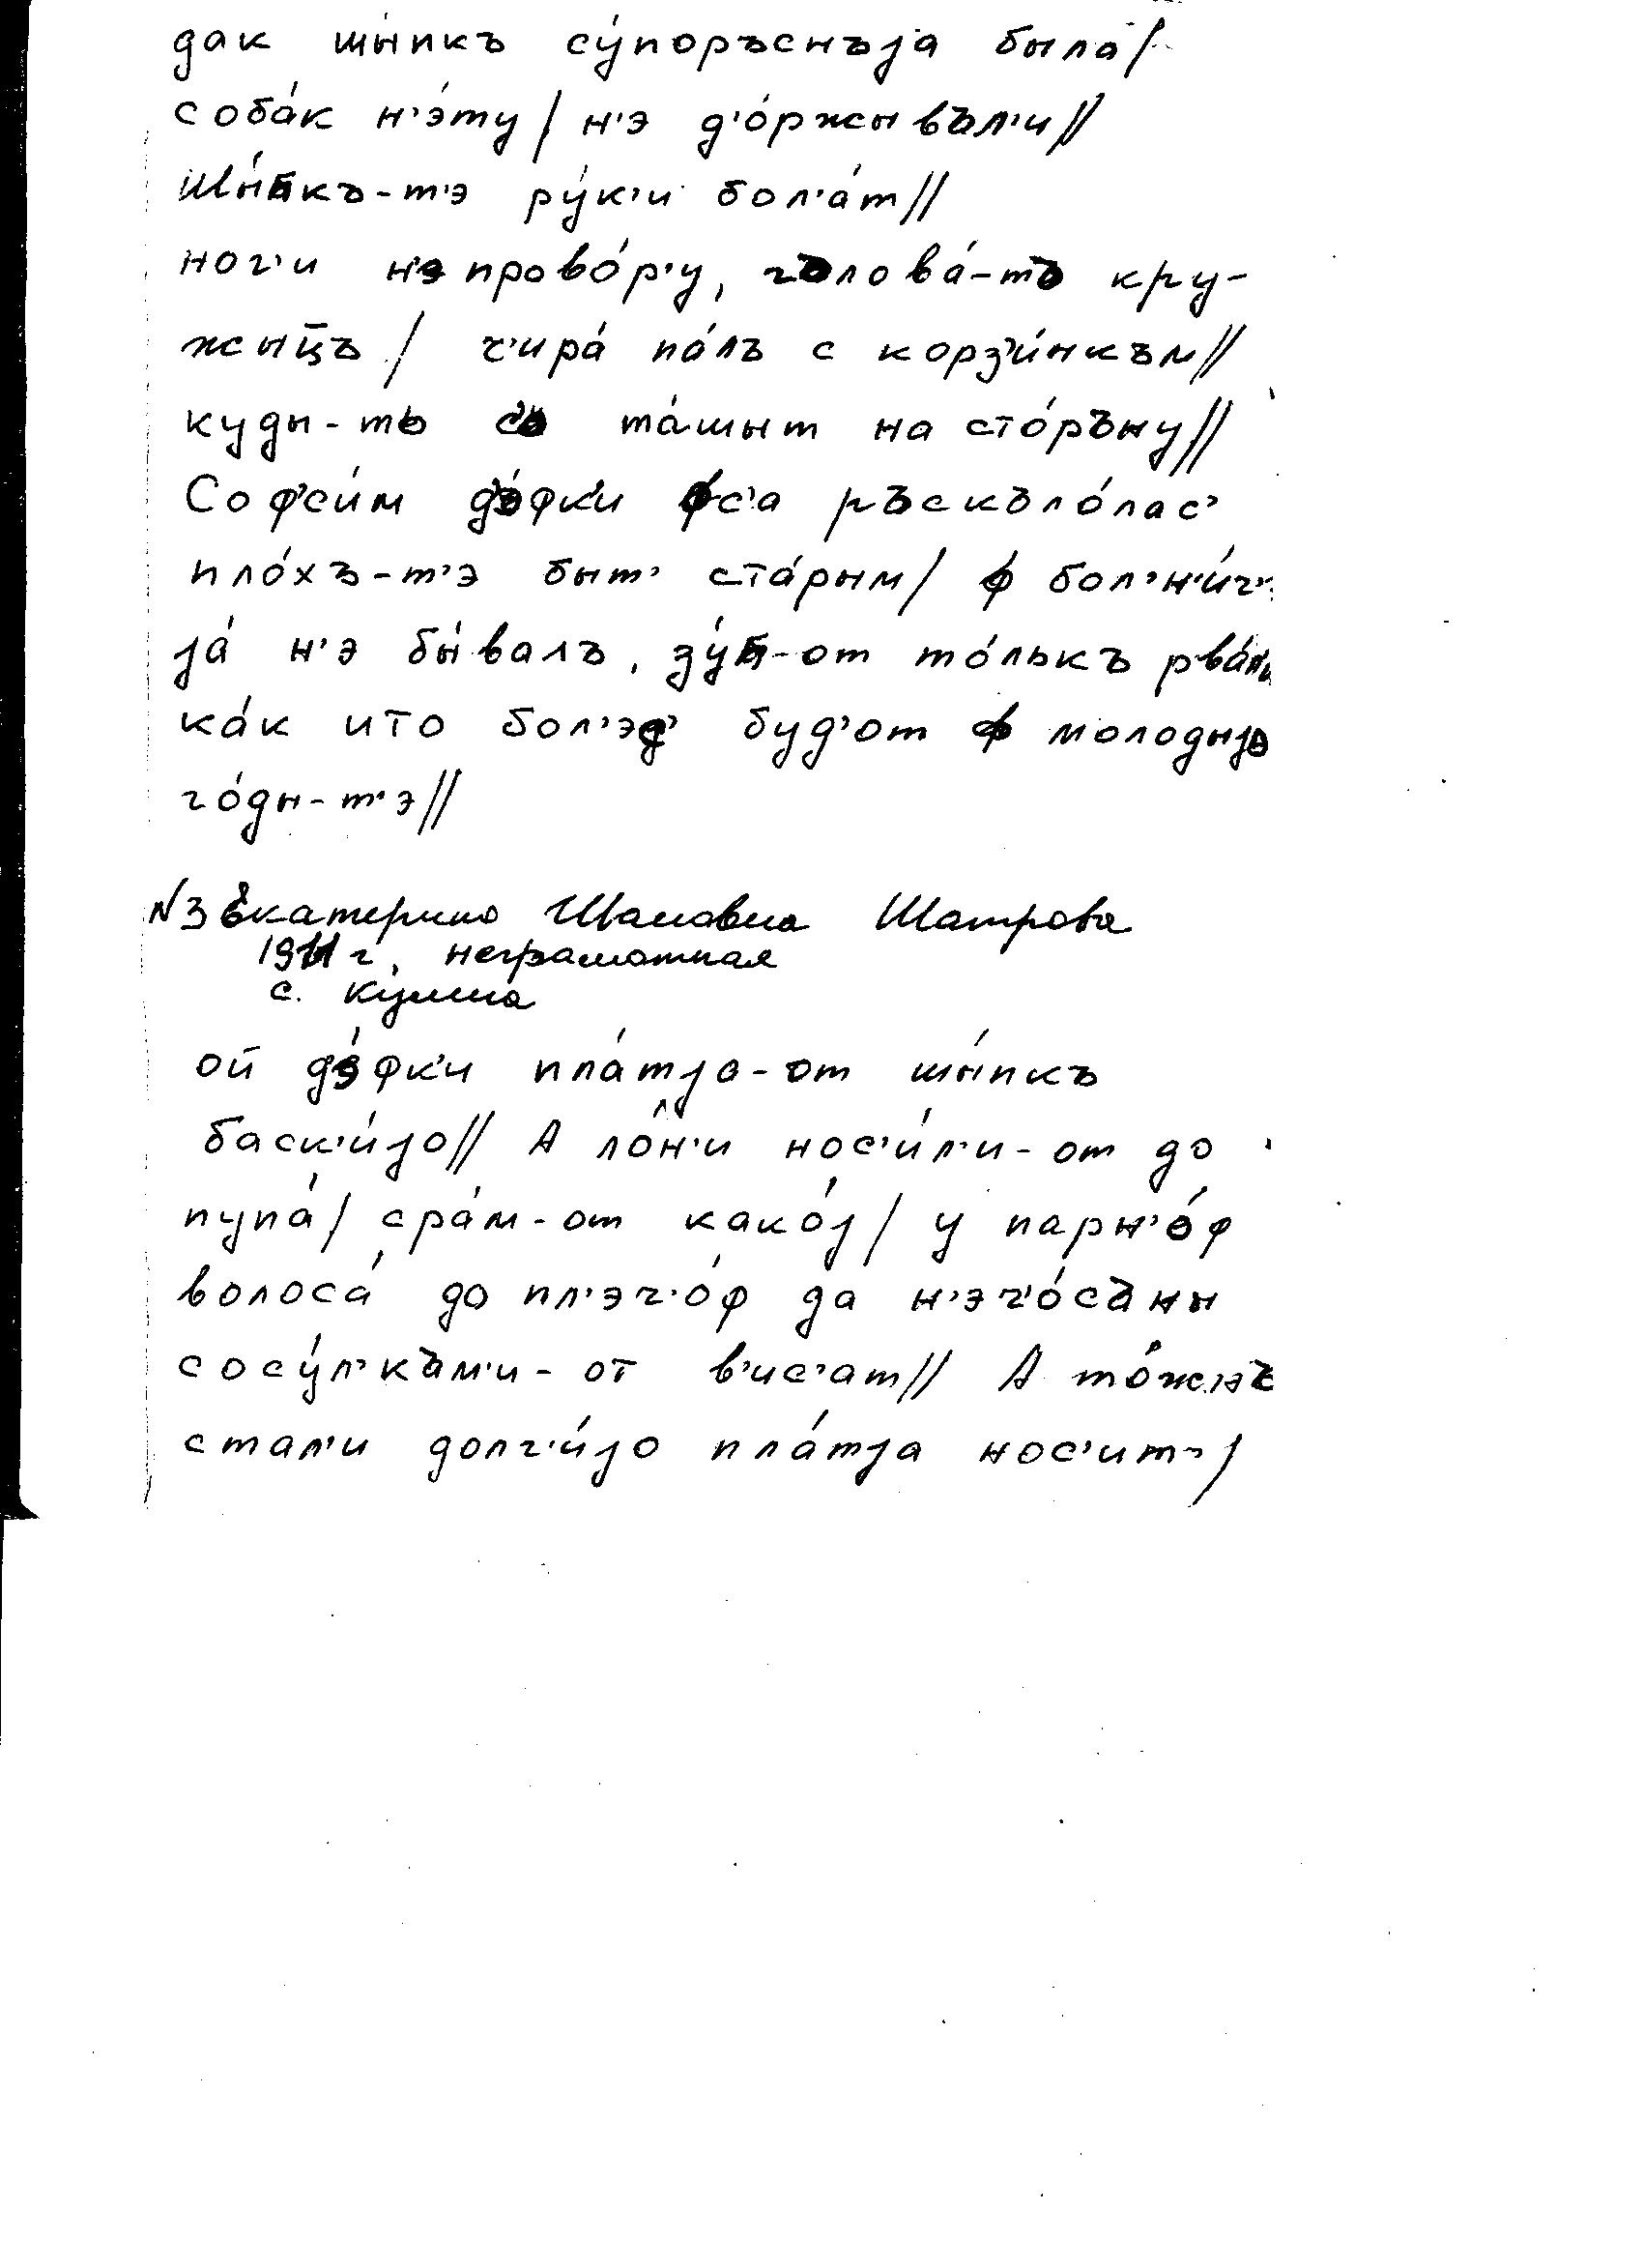 дак шы́пкъ су́поръснъjа была́/
соба́к н'э́ту / н'э д'о́ржывъл'и //
Шы́пкъ-т'э ру́к'и бол'а́т //
ног'и н'э прово́р'у, гъловá-тъ кру-
жыц̄ъ / ч'ира́ па́лъ с корз'и́нкъм //
куды-тъ та́шыт на сто́ръну //
Соф'си́м д'э́фк'и фс'а ръскъло́лас'
пло́хъ-т'э быт' ста́рым / ф бол'н'и́ч'
jа́ н'э бы́валъ, зу́п-от то́лькъ рва́ли
ка́к што бол'эд' буд'от ф молодыjо
го́ды-т'э //
N3 Екатерина Шатрова
1911 г. неграмотная
с. Кулига
ой д'э́фк'и пла́тjа-от шы́пкъ
баск'и́jо // А ло̂н'и нос'и́л'и-от до
пупа́ / сра́м-от како́j / у парн'о́ф
волоса́ до пл'эч'о́ф да н'эч'о́съны
сосу́л'към'и-от в'ис'ат // А то́жнъ
стал'и долг'и́jо пла́тjа нос'ит' /